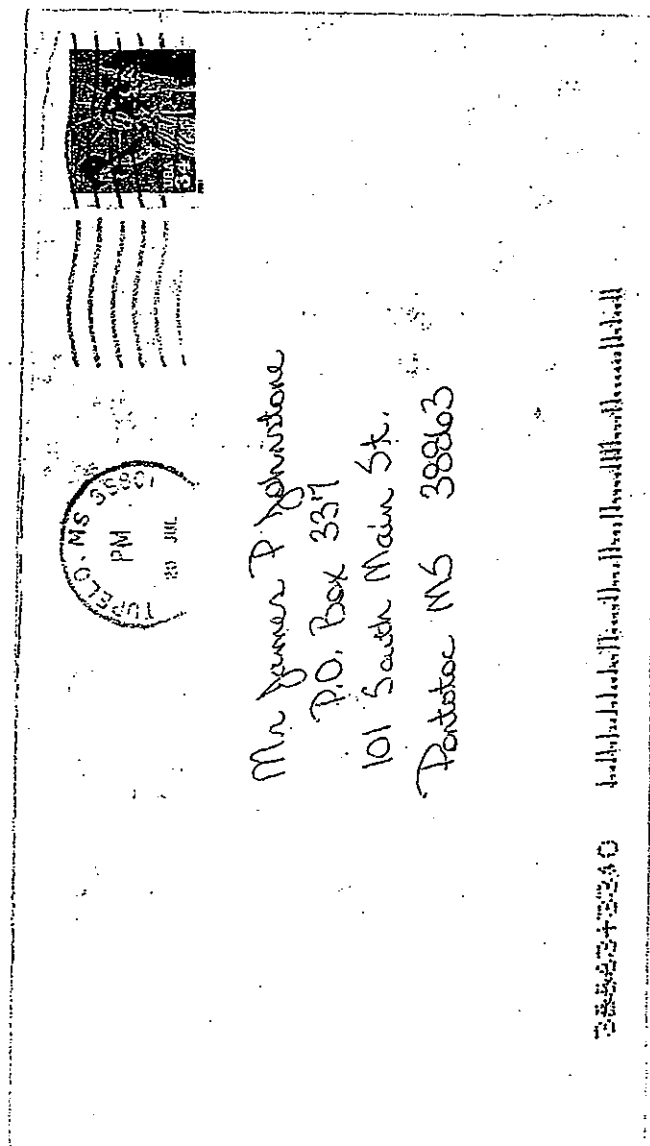 TUPELO, MS 38801
PM
20 JUL
Mr James P. Johnstone
P.O. Box 337
101 South Main St.
Pontotoc MS 38863